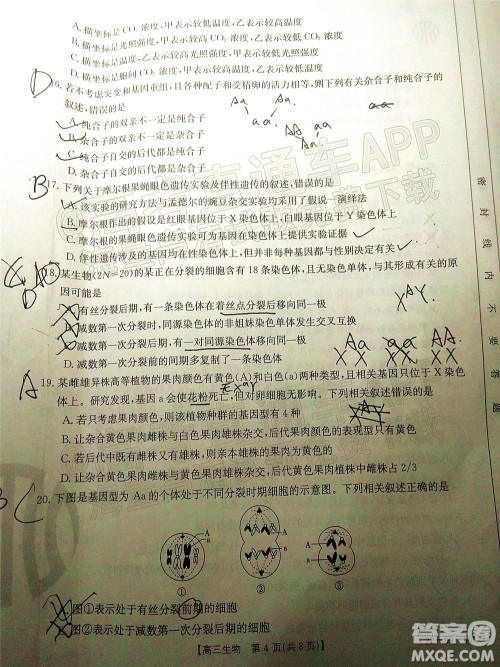 A. 横坐标是 CO₂ 浓度,甲表示较低温度,乙表示较高温度
B. 横坐标是光照强度,甲表示较低 CO₂ 浓度,乙表示较高 CO₂ 浓度
C. 横坐标是光照强度,甲表示较高 CO₂ 浓度,乙表示较低 CO₂ 浓度
D. 横坐标是胞间 CO₂ 浓度,甲表示较低温度,乙表示较高温度
D 16. 若不考虑交变和基因重组,且各种配子和受精卵的活力相等,则下列有关杂合子和纯合子的
叙述,错误的是
Aa
aa
A. 纯合子的双亲不一定是纯合子
B. 杂合子的双亲不一定是杂合子
Aa aa
C. 纯合子自交的后代都是纯合子
D. 杂合子自交的后代都是杂合子
B 17. 下列关于摩尔根果蝇眼色遗传实验及伴性遗传的叙述,错误的是
A. 该实验的研究方法与孟德尔的豌豆杂交实验类似,均使用了假一演绎法
B. 摩尔根作出的假设是白眼基因位于 X 染色体上,红眼基因位于 Y 染色体上
C. 摩尔根的果蝇眼色遗传实验可为萨顿假说提供证据
D. 伴性遗传中基因的遗传都与性别决定有关
18. 某生物(2N=20)的某正在分裂的细胞含有 18 条染色体,且无基因突变,与其形成有关的原
因可能是
A. 有丝分裂后期,有一条染色体在着丝点分裂后移向同一极
B. 减数第一次分裂时,同源染色体的非姐妹染色单体发生交叉互换
C. 减数第一次分裂后期,有一对同源染色体移向同一极
D. 减数第一次分裂前的间期多复制了一条染色体
A 19. 某雌雄异株高等植物的果肉颜色有黄色(A)和白色(a)两种类型,且相关基因只位于 X 染色
体上。研究发现,基因 a 会使花粉死亡,但对卵细胞无影响。下列相关叙述错误的是
A. 若只考虑果肉颜色,则该植物的基因型有 4 种
B. 让杂合黄色果肉雌株与白色果肉雄株杂交,后代果肉颜色的表现型只有黄色
C. 让杂合黄色果肉雌株与黄色果肉雄株杂交,后代黄色果肉植株中雌株占 2/3
20. 下图是基因型为 Aa 的个体处于不同分裂时期细胞的示意图。下列相关叙述正确的是
A B A B
① ② ③
A. 图①表示处于有丝分裂前期的细胞
B. 图②表示处于减数第一次分裂后期的细胞
高三生物 第 4 页(共 8 页)
密封线内不要答题
直通车APP
下载
答案圈
MXQE.COM